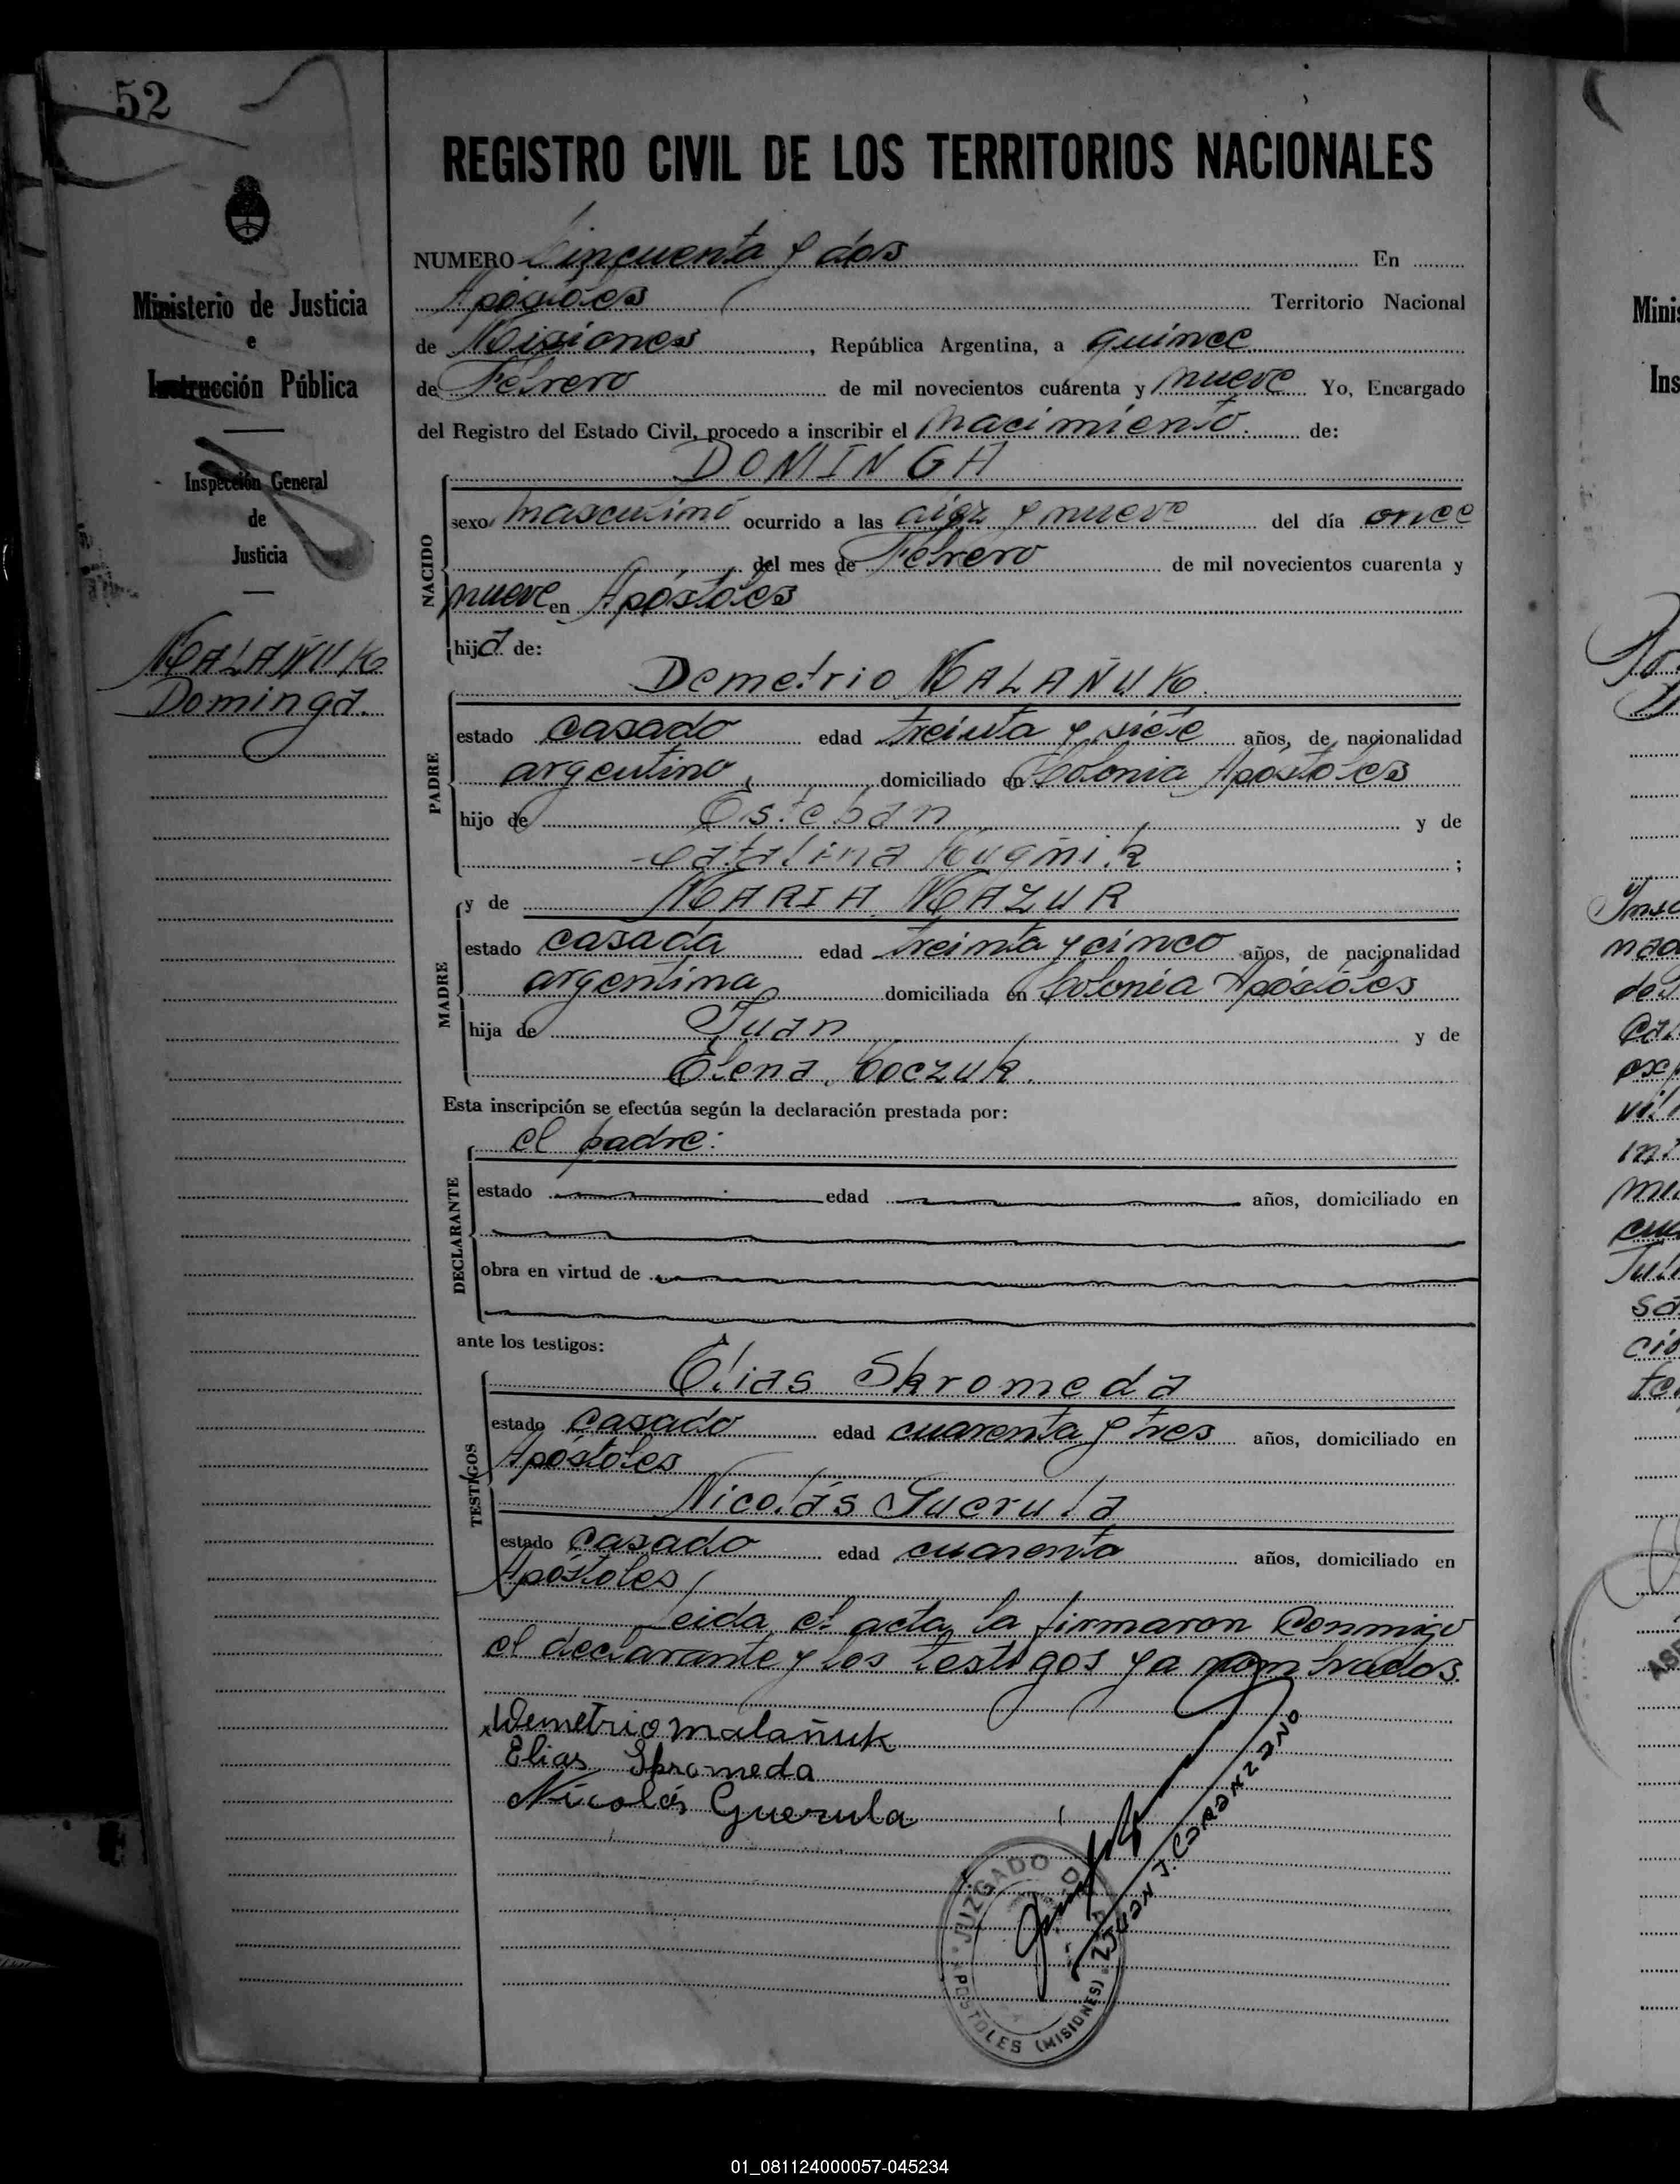 52
REGISTRO CIVIL DE LOS TERRITORIOS NACIONALES
Ministerio de Justicia
e
Instrucción Pública
Inspección General
de
Justicia
MALAÑUK
Dominga.
NUMERO Cincuenta y dos En
Apóstoles Territorio Nacional
de Misiones, República Argentina, a quince
de Febrero de mil novecientos cuárenta y nueve Yo, Encargado
del Registro del Estado Civil, procedo a inscribir el nacimiento. de:
DOMINGA
NACIDO
sexo masculino ocurrido a las diez y nueve del día once
del mes de Febrero de mil novecientos cuarenta y
nueve en Apóstoles
hija de:
Demetrio MALAÑUK.
PADRE
estado casado edad treinta y siete años, de nacionalidad
argentino, domiciliado en Colonia Apóstoles
hijo de Esteban y de
Catalina ;
y de MARIA MAZUR
MADRE
estado casada edad treinta y cinco años, de nacionalidad
argentina domiciliada en Colonia Apóstoles
hija de Juan y de
Elena Koczuk.
Esta inscripción se efectúa según la declaración prestada por:
el padre:
DECLARANTE
estado edad años, domiciliado en
obra en virtud de
ante los testigos:
Elias Skromeda
TESTIGOS
estado casado edad cuarenta y tres años, domiciliado en
Apóstoles
Nicolás Guerula
estado casado edad cuarenta años, domiciliado en
Apóstoles
Leida el acta la firmaron conmigo
el declarante y los testigos ya nombrados.
Demetrio Malañuk
Elias Skromeda
Nicolás Guerula
JUAN J. CORANZANO
JUZGADO DE PAZ
APOSTOLES (MISIONES)
01_081124000057-045234